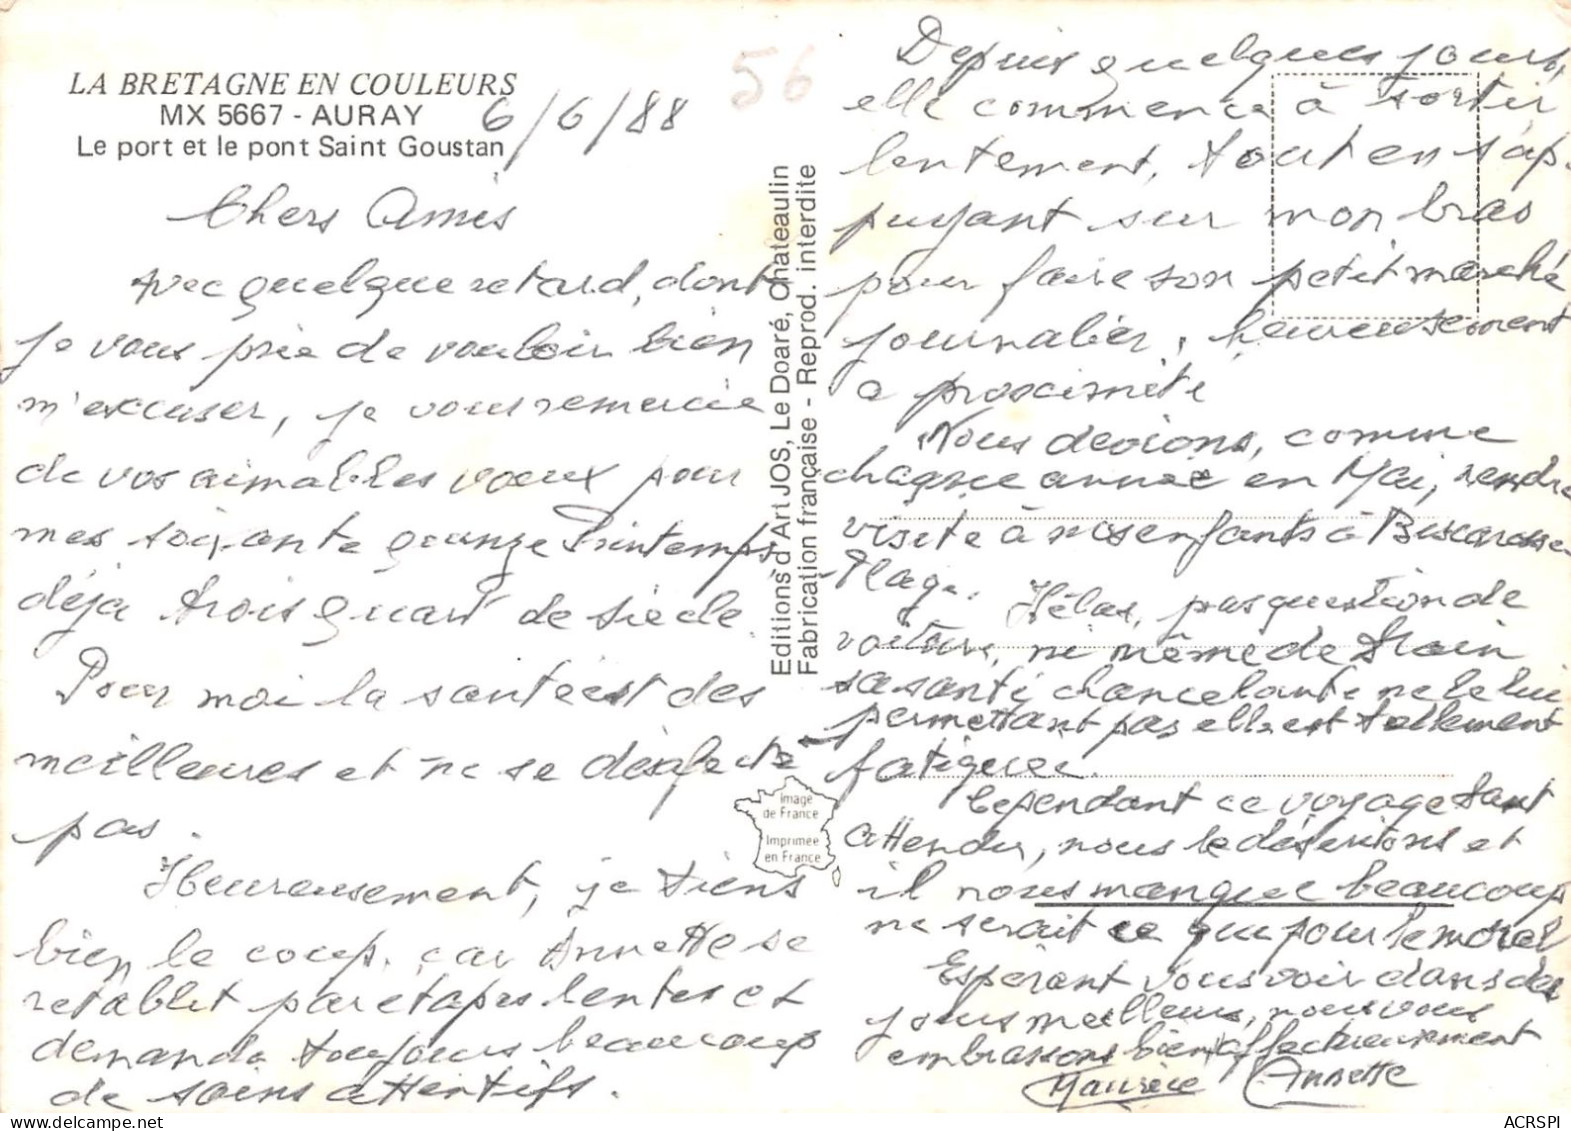 LA BRETAGNE EN COULEURS
MX 5667 - AURAY
Le port et le pont Saint Goustan
6/6/88
56
Chers Amis
Avec quelque retard, dont
je vous prie de vouloir bien
m'excuser, je vous remercie
de vos aimables voeux pour
mes soixante quinze Printemps,
déjà trois quart de siècle.
Pour moi la santé est des
meilleures et ne se désaffecte
pas.
Heureusement, je tiens
bien le coup, car Annette se
retablet par etapes lentes et
demande toujours beaucoup
de soins attentifs.
Editions d'Art JOS, Le Doaré, Chateaulin
Fabrication française - Reprod. interdite
Image
de France
Imprimée
en France
Depuis quelques jours,
elle commence à sortir
lentement, tout en s'ap-
puyant sur mon bras
pour faire son petit marché
journalier, heureusement
a proximité
Nous devions, comme
chaque année en Mai, rendre
visite à nos enfants à Biscarosse
-Plage. Hélas, pas question de
voiture, ni même de train
sa santé chancelante ne le lui
permettant pas elle est tellement
fatiguée.
Cependant ce voyage tant
attendu, nous le désirions et
il nous manque beaucoup
ne serait ce que pour le moral
Espérant vous voir dans des
jours meilleurs, nous vous
embrassons bien affectueusement
Maurice Annette
ACRSPI